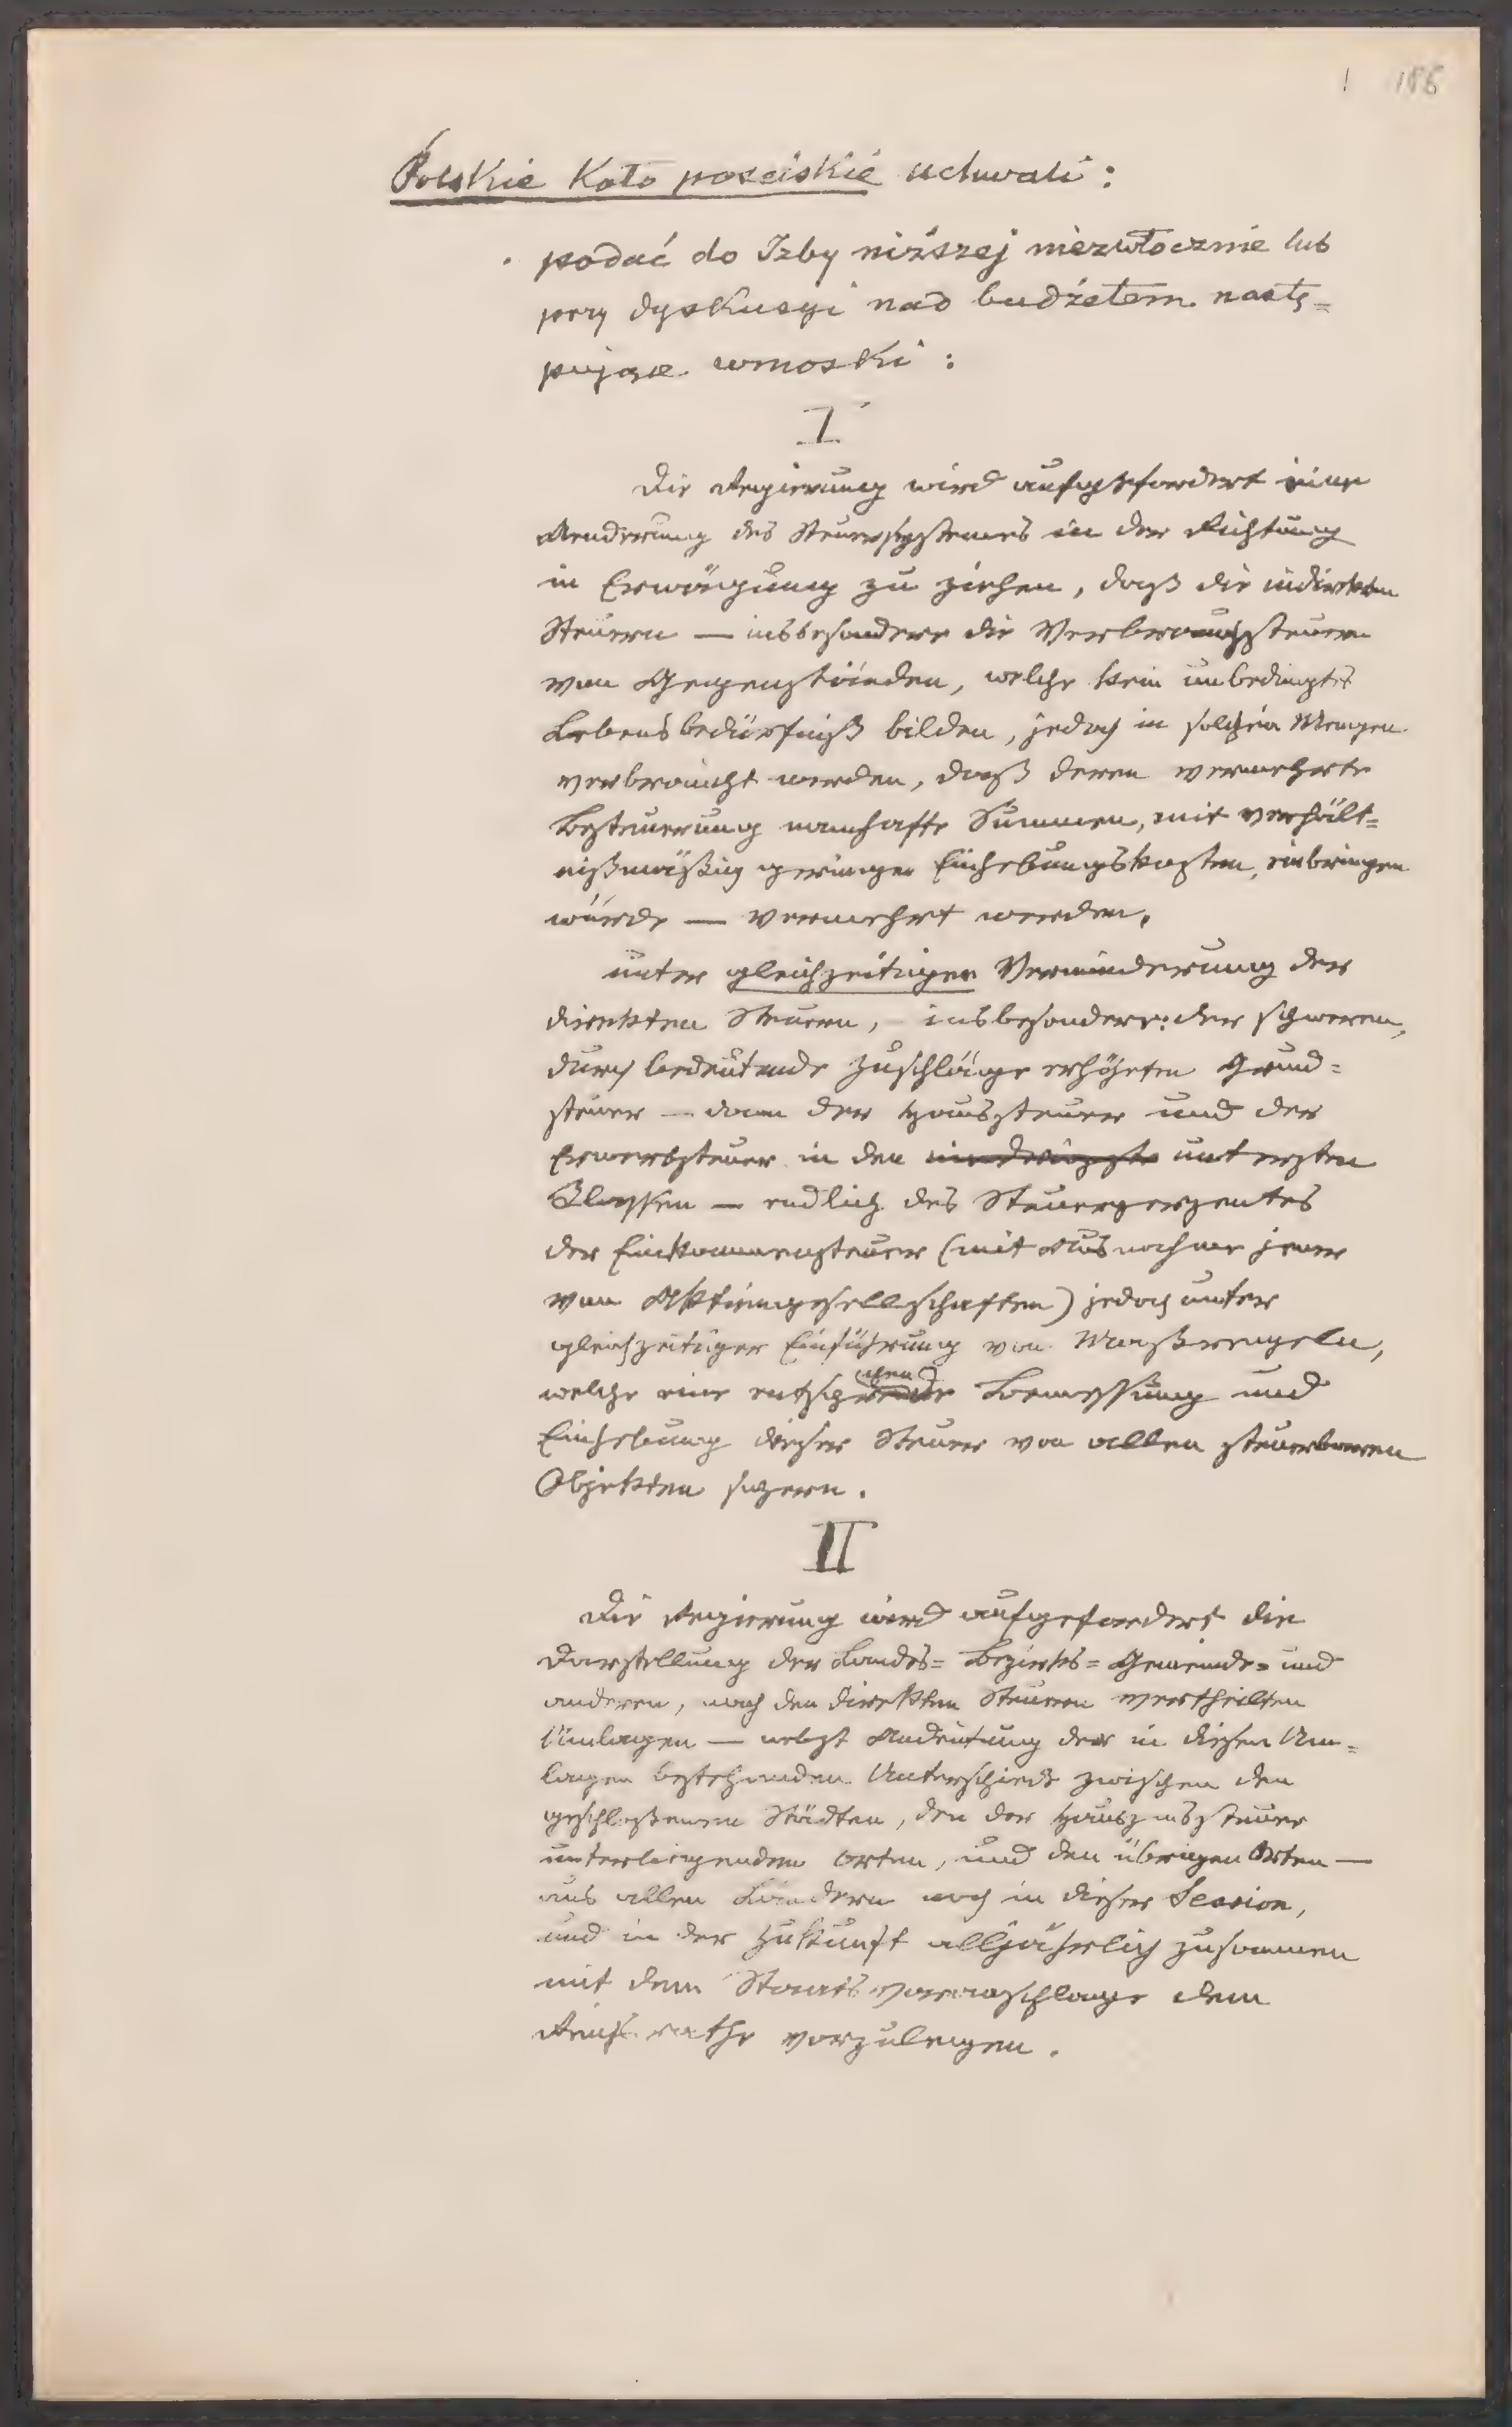 ! 186
Polskie Koło poselskie uchwali:
podać do Izby niższej niezwłocznie lub
przy dyskusyi nad budżetem nastę-
pujące wnioski:
I
Die Regierung wird aufgefordert eine
Aenderung des Steuersystemes in der Richtung
in Erwägung zu ziehen, daß die indirekten
Steuern — insbesondere die Verbrauchssteuern
von Gegenständen, welche kein unbedingtes
Lebensbedürfniß bilden, jedoch in solchen Mengen
verbraucht werden, daß deren vermehrte
Besteuerung namhafte Summen, mit verhält=
nißmäßig geringen Einhebungskosten, einbringen
würde — vermehrt werden,
unter gleichzeitiger Verminderung der
direkten Steuern, — insbesondere: der schweren,
durch bedeutende Zuschläge erhöhten Grund=
steuer — dann der Haussteuer und der
Erwerbsteuer in den niedrigste untersten
Klassen — endlich des Steuerperzentes
der Einkommensteuer (mit Ausnahme jener
von Aktiengesellschaften) jedoch unter
gleichzeitiger Einführung von Maßregeln,
welche eine Bemessung und
Einhebung dieser Steuer von allen steuerbaren
Objekten sichern.
II
Die Regierung wird aufgefordert die
Darstellung der Landes= Bezirks= Gemeinde= und
anderen, nach den direkten Steuern vertheilten
Umlagen — nebst Andeutung der in diesen Um=
lagen bestehenden Unterschiede zwischen den
geschloßenen Städten, den der Hauszinssteuer
unterliegenden Orten, und den übrigen Orten —
aus allen Ländern noch in dieser Session,
und in der Zukunft alljährlich zusammen
mit dem Staatsvoranschlage dem
Reichsrathe vorzulegen.